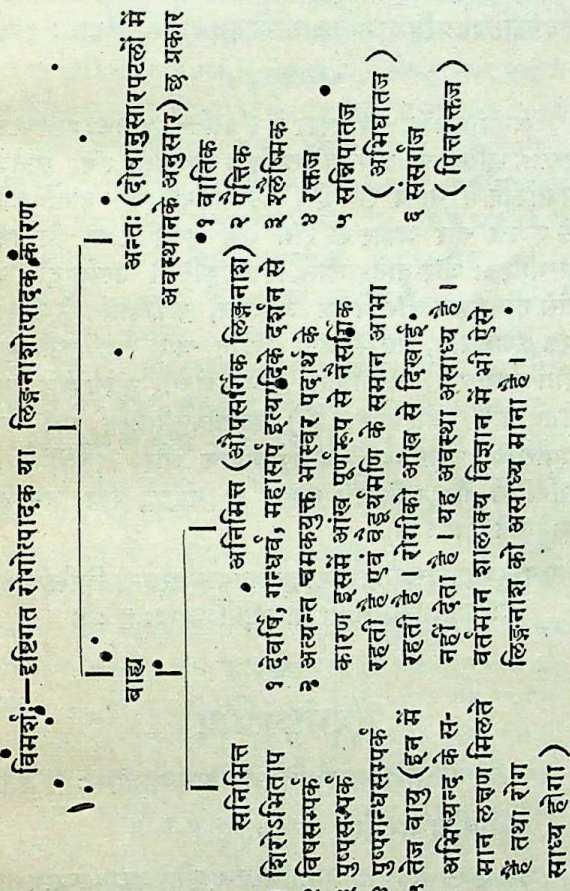 विमर्शः—दृष्टिगत रोगोत्पादक या लिङ्गनाशोत्पादक कारण
बाह्य
सनिमित्त
शिरोऽभिताप
विषसम्पर्क
पुष्पसम्पर्क
पुष्पगन्धसम्पर्क
तेज वायु (इन में
अभिष्यन्द के स-
मान लक्षण मिलते
हैं तथा रोग
साध्य होगा)
अनिमित्त (औपसर्गिक लिङ्गनाश)
१ देवर्षि, गन्धर्व, महासर्प इत्यादिके दर्शन से
२ अत्यन्त चमकयुक्त भास्वर पदार्थ के
कारण इसमें आंख पूर्णरूप से नैसर्गिक
रहती है एवं वैडूर्यमणि के समान आभा
रहती है । रोगीको आंख से दिखाई
नहीं देता है । यह अवस्था असाध्य है ।
वर्तमान शालाक्य विज्ञान में भी ऐसे
लिङ्गनाश को असाध्य माना है ।
अन्तः (दोषानुसारपटलों में
अवस्थानके अनुसार) छ प्रकार
१ वातिक
२ पैत्तिक
३ श्लैष्मिक
४ रक्तज
५ सन्निपातज
(अभिघातज)
६ संसर्गज
(पित्तरक्तज)